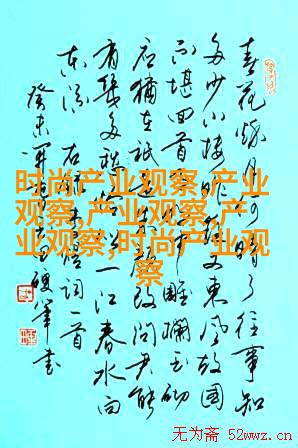 春花秋月何时了往事知
多少小楼昨夜又東风故国
不堪回首月明中雕欄玉砌
应猶在
改问君能
有几多愁
一江春水向
东流
词一首
癸未
军书
时尚产业观察,产业
观察,产业观察,产
业观察,时尚产业观
察
无为斋 52wwz.cn